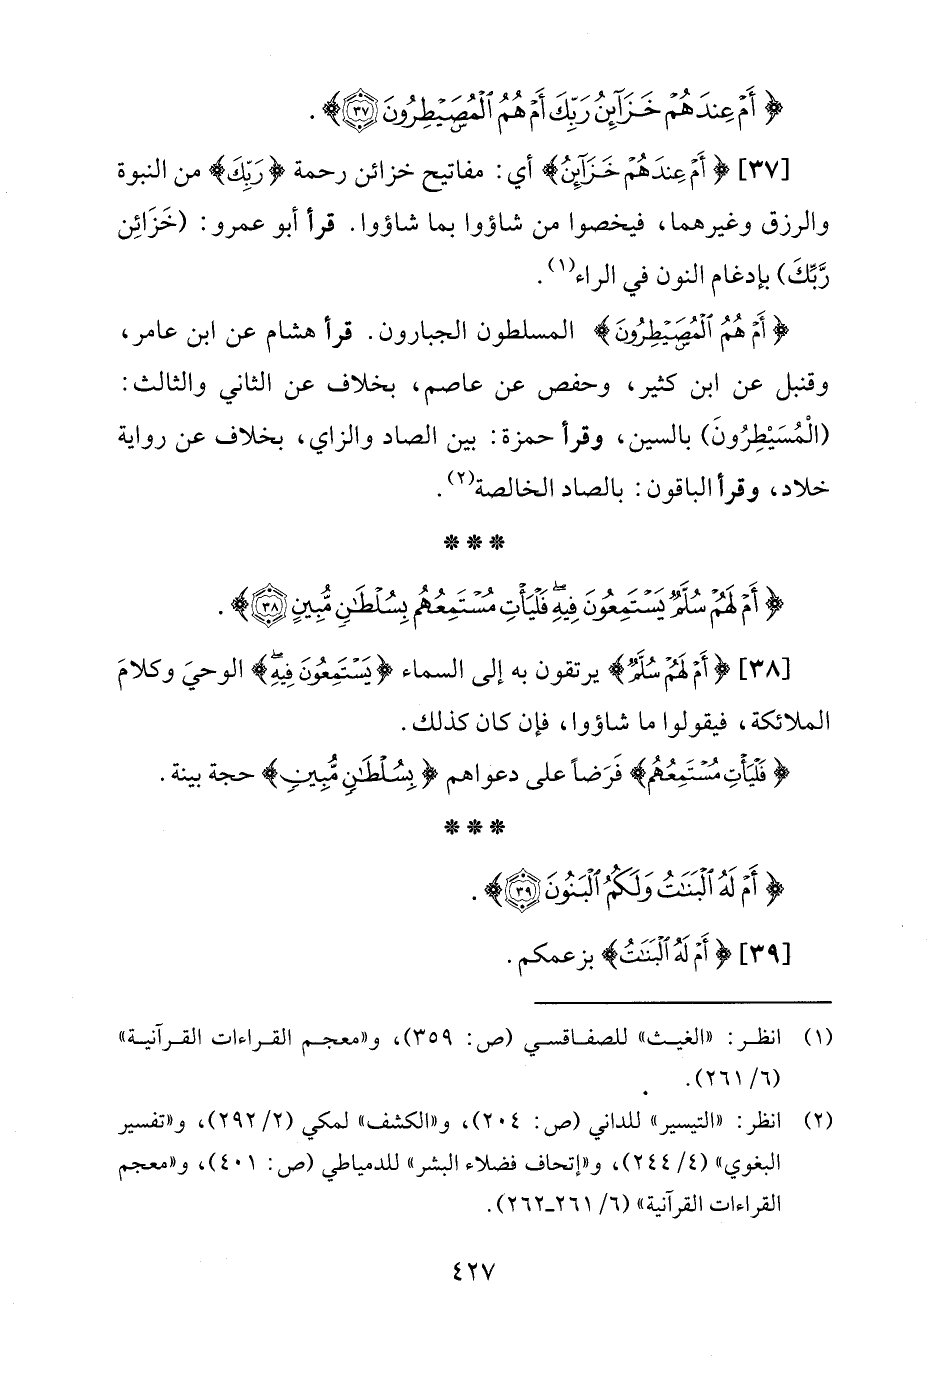 ﴿ أَمْ عِندَهُمْ خَزَآئِنُ رَبِّكَ أَمْ هُمُ ٱلْمُصَۣيْطِرُونَ ٣٧﴾ .
[٣٧] ﴿ أَمْ عِندَهُمْ خَزَآئِنُ﴾ أي: مفاتيح خزائن رحمة ﴿رَبِّكَ﴾ من النبوة
والرزق وغيرهما، فيخصوا من شاؤوا بما شاؤوا. قرأ أبو عمرو: (خَزَائِن
رَّبِّكَ) بإدغام النون في الراء(١).
﴿أَمْ هُمُ ٱلْمُصَۣيْطِرُونَ﴾ المسلطون الجبارون. قرأ هشام عن ابن عامر،
وقنبل عن ابن كثير، وحفص عن عاصم، بخلاف عن الثاني والثالث:
(الْمُسَيْطِرُونَ) بالسين، وقرأ حمزة: بين الصاد والزاي، بخلاف عن رواية
خلاد، وقرأ الباقون: بالصاد الخالصة(٢).
* * *
﴿ أَمْ لَهُمْ سُلَّمٌ يَسْتَمِعُونَ فِيهِۖ فَلْيَأْتِ مُسْتَمِعُهُم بِسُلْطَٰنٍ مُّبِينٍ ٣٨﴾ .
[٣٨] ﴿أَمْ لَهُمْ سُلَّمٌ﴾ يرتقون به إلى السماء ﴿يَسْتَمِعُونَ فِيهِۖ﴾ الوحيَ وكلامَ
الملائكة، فيقولوا ما شاؤوا، فإن كان كذلك.
﴿فَلْيَأْتِ مُسْتَمِعُهُم﴾ فَرَضاً على دعواهم ﴿بِسُلْطَٰنٍ مُّبِينٍ﴾ حجة بينة.
* * *
﴿ أَمْ لَهُ ٱلْبَنَٰتُ وَلَكُمُ ٱلْبَنُونَ ٣٩﴾ .
[٣٩] ﴿أَمْ لَهُ ٱلْبَنَٰتُ﴾ بزعمكم.
(١) انظر: «الغيث» للصفاقسي (ص: ٣٥٩)، و«معجم القراءات القرآنية»
(٦/ ٢٦١).
(٢) انظر: «التيسير» للداني (ص: ٢٠٤)، و«الكشف» لمكي (٢/ ٢٩٢)، و«تفسير
البغوي» (٤/ ٢٤٤)، و«إتحاف فضلاء البشر» للدمياطي (ص: ٤٠١)، و«معجم
القراءات القرآنية» (٦/ ٢٦١-٢٦٢).
٤٢٧